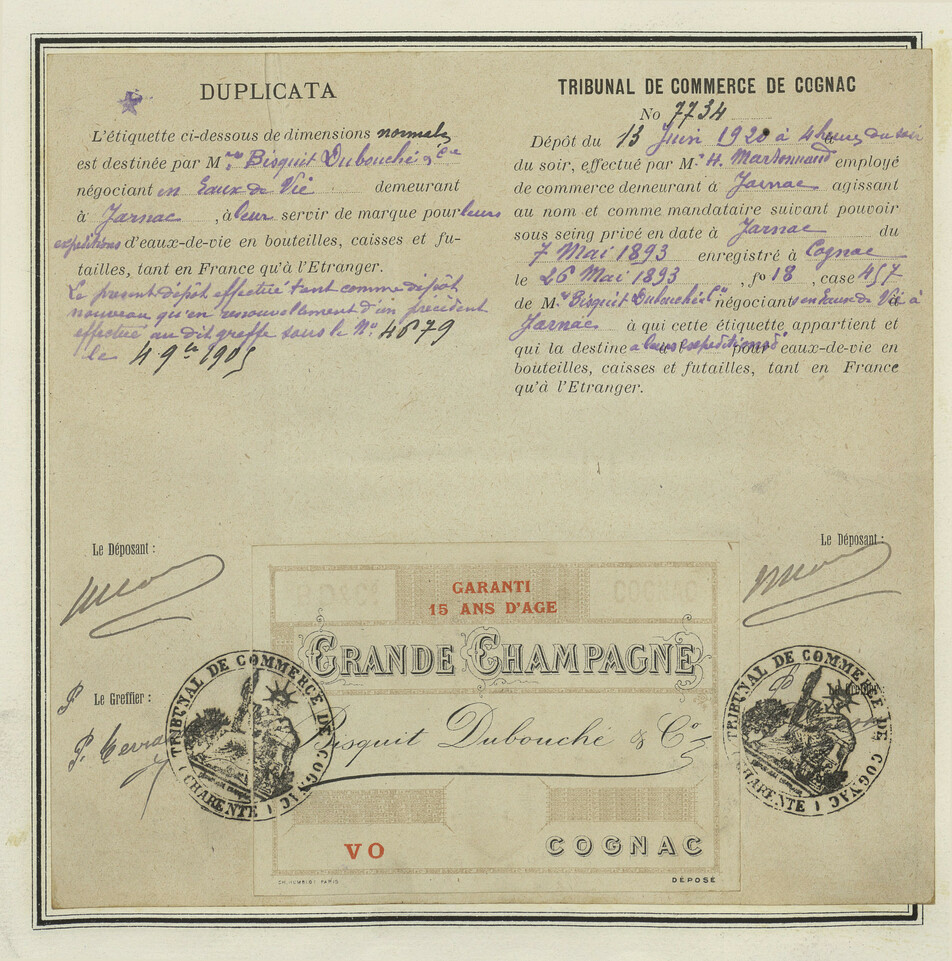 DUPLICATA
L'étiquette ci-dessous de dimensions normales
est destinée par Mrs Bisquit Dubouché & Cie
négociant en Eaux de Vie demeurant
à Jarnac, à leur servir de marque pour leurs
expéditions d'eaux-de-vie en bouteilles, caisses et fu-
tailles, tant en France qu'à l'Etranger.
Le présent dépôt effectué tant comme dépôt
nouveau qu'en renouvellement d'un précédent
effectué au dit greffe sous le No. 4679
le 4 9bre 1905
TRIBUNAL DE COMMERCE DE COGNAC
No 7734
Dépôt du 13 Juin 1920 à 4 heures du soir
du soir, effectué par Mr H. employé
de commerce demeurant à Jarnac agissant
au nom et comme mandataire suivant pouvoir
sous seing privé en date à Jarnac du
7 Mai 1893 enregistré à Cognac
le 26 Mai 1893, fo 18, case 457
de Mrs Bisquit Dubouché & Cie négociants en eaux de Vie à
Jarnac à qui cette étiquette appartient et
qui la destine à leurs expéditions d'eaux-de-vie en
bouteilles, caisses et futailles, tant en France
qu'à l'Etranger.
Le Déposant :
Le Déposant :
Le Greffier :
Le Greffier :
TRIBUNAL DE COMMERCE DE COGNAC
(CHARENTE)
TRIBUNAL DE COMMERCE DE COGNAC
(CHARENTE)
GARANTI
15 ANS D'AGE
GRANDE CHAMPAGNE
Bisquit Dubouché & Co
VO
COGNAC
DÉPOSÉ